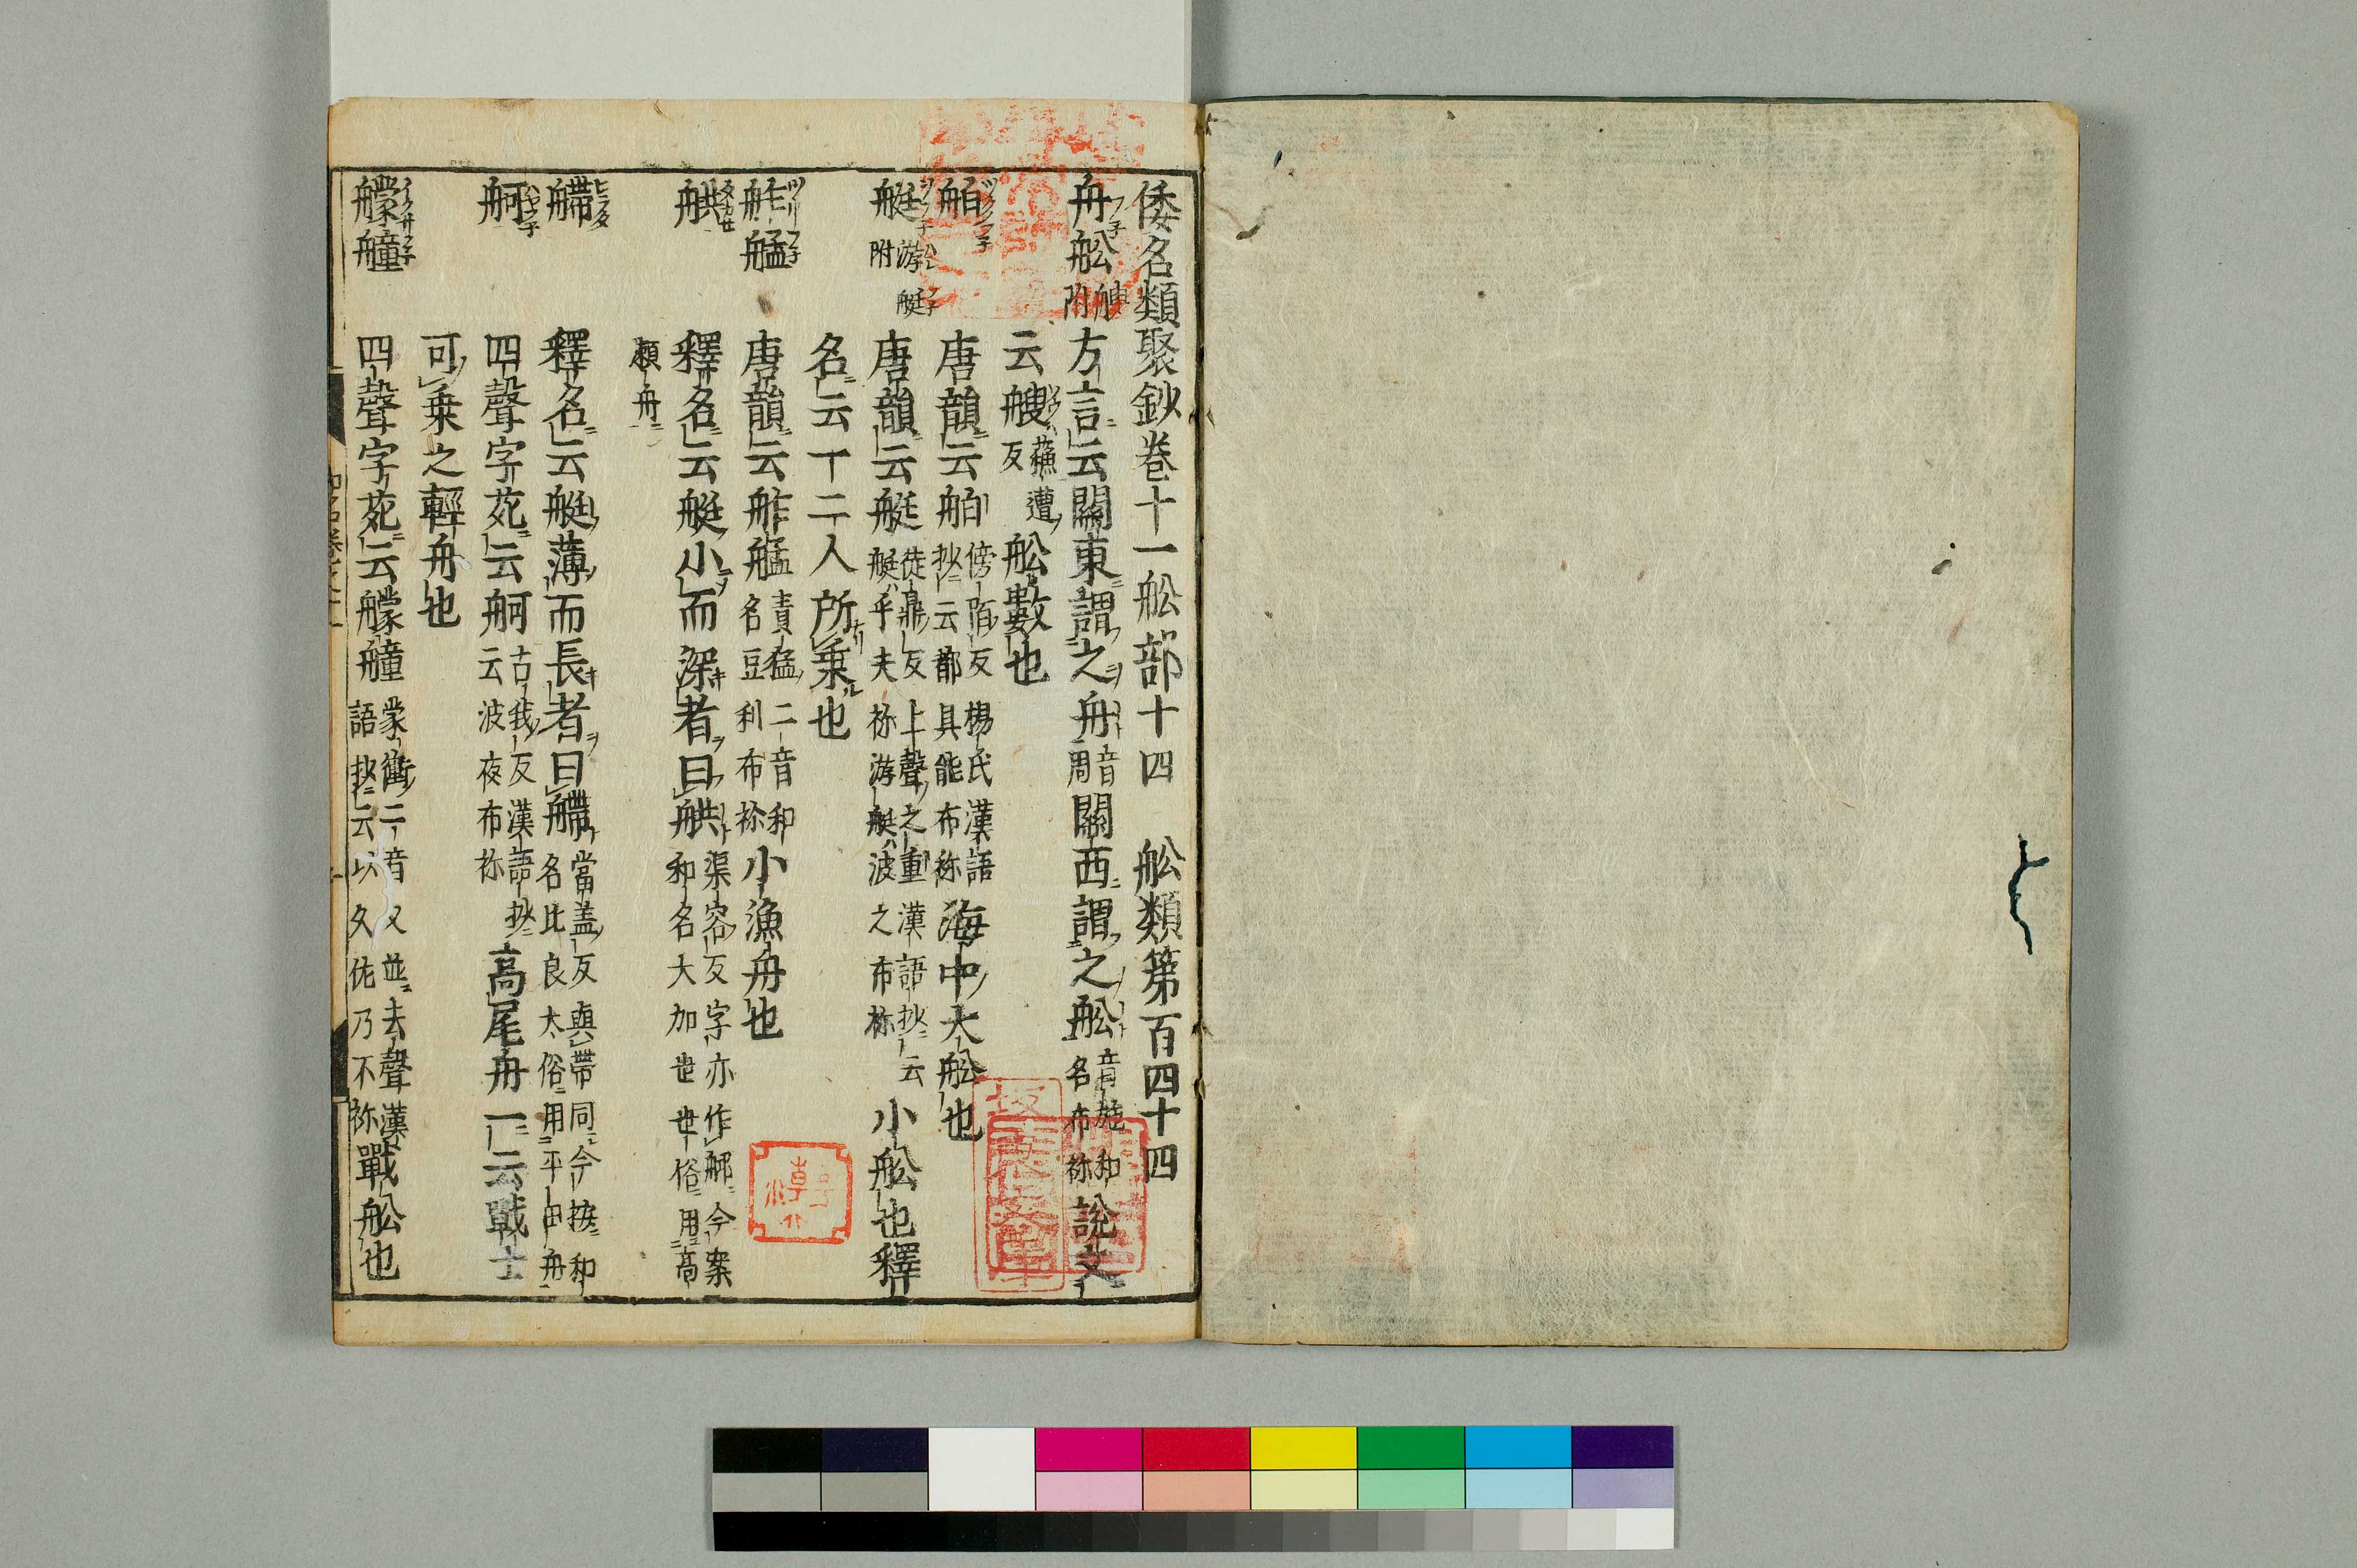 倭名類聚鈔卷十一舩部十四　舩類第百四十四
舟舩艘附 方言云關東謂之舟音周關西謂之舩音旋和名布祢說文
云艘蘓遭反舩數也
舶 唐韻云舶傍陌反楊氏漢語抄云都具能布祢海中大舩也
艇游艇附 唐韻云艇徒鼎反上聲之重漢語抄云艇乎夫祢游艇波之布祢小舩也釋
名云一二人所乗也
舴艋 唐韻云舴艋責猛二音和名豆利布祢小漁舟也
䑪 釋名云艇小而深者曰䑪渠容反字亦作𦨰今案和名大加世世俗用高
瀬舟
艜 釋名云艇薄而長者曰艜當盖反與帶同今按和名比良太俗用平田舟
舸 四聲字苑云舸古我反漢語抄云波夜布祢高尾舟一云戰士
可乗之輕舟也
艨艟 四聲字苑云艨艟蒙衝二音又並去聲漢語抄云以久佐乃不祢戰舩也